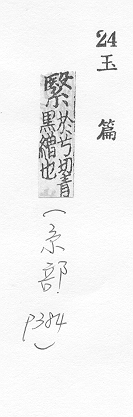 24
玉篇
繄 於兮切青
黑繒也
(糸部
P384)